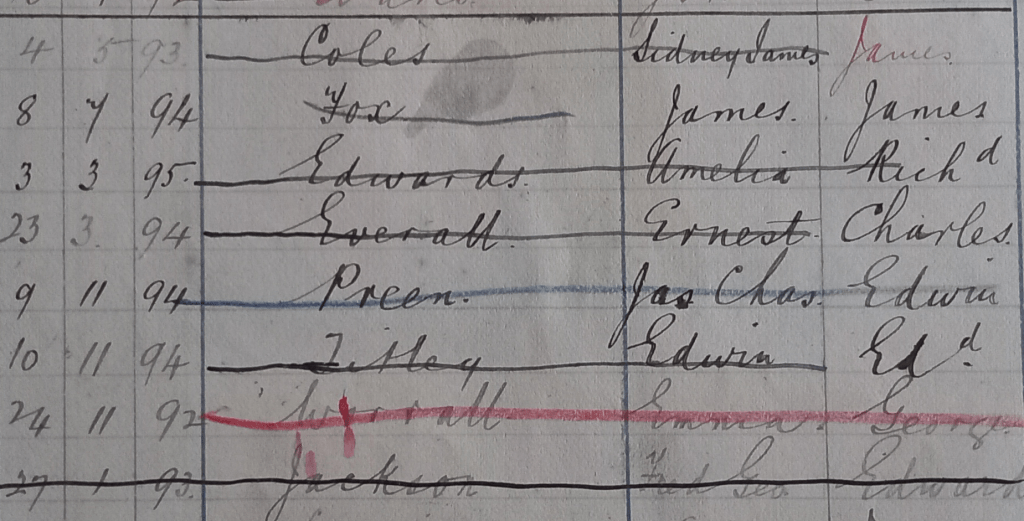 4 5 93 Coles Sidney James James
8 7 94 Fox James. James
3 3 95. Edwards. Amelia Rich^d
23 3. 94 Everall. Ernest. Charles.
9 11 94 Preen. Jas Chas. Edwin
10 11 94 Titley Edwin Ed^d
24 11 92 Worrall Emma. George.
27 1 93. Jackson Fred Geo Edward